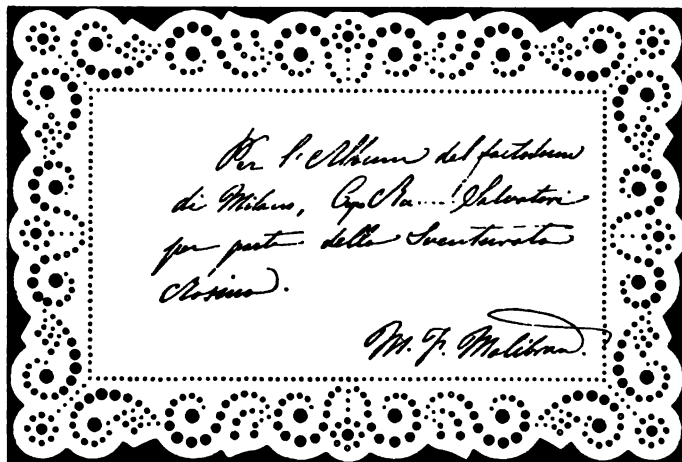 Per l'Album del factotum
di Milano, Salvatori
per parte della Sventurata
Rosina.
M. F. Malibran.